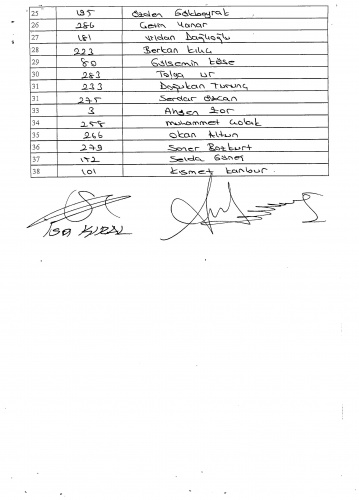 25 195 Özlem Gökbayrak
26 286 Çetin Yanar
27 181 Vildan Dağlıoğlu
28 223 Berkan Kılıç
29 80 Gülsemin Köse
30 283 Tolga Ur
31 233 Doğukan Turunç
31 275 Serdar Özcan
33 3 Ahsen Zor
34 258 Muhammet Çolak
35 266 Okan Altun
36 279 Soner Bozkurt
37 172 Selda Güneş
38 101 Kısmet Kanbur
İsa KIRAL